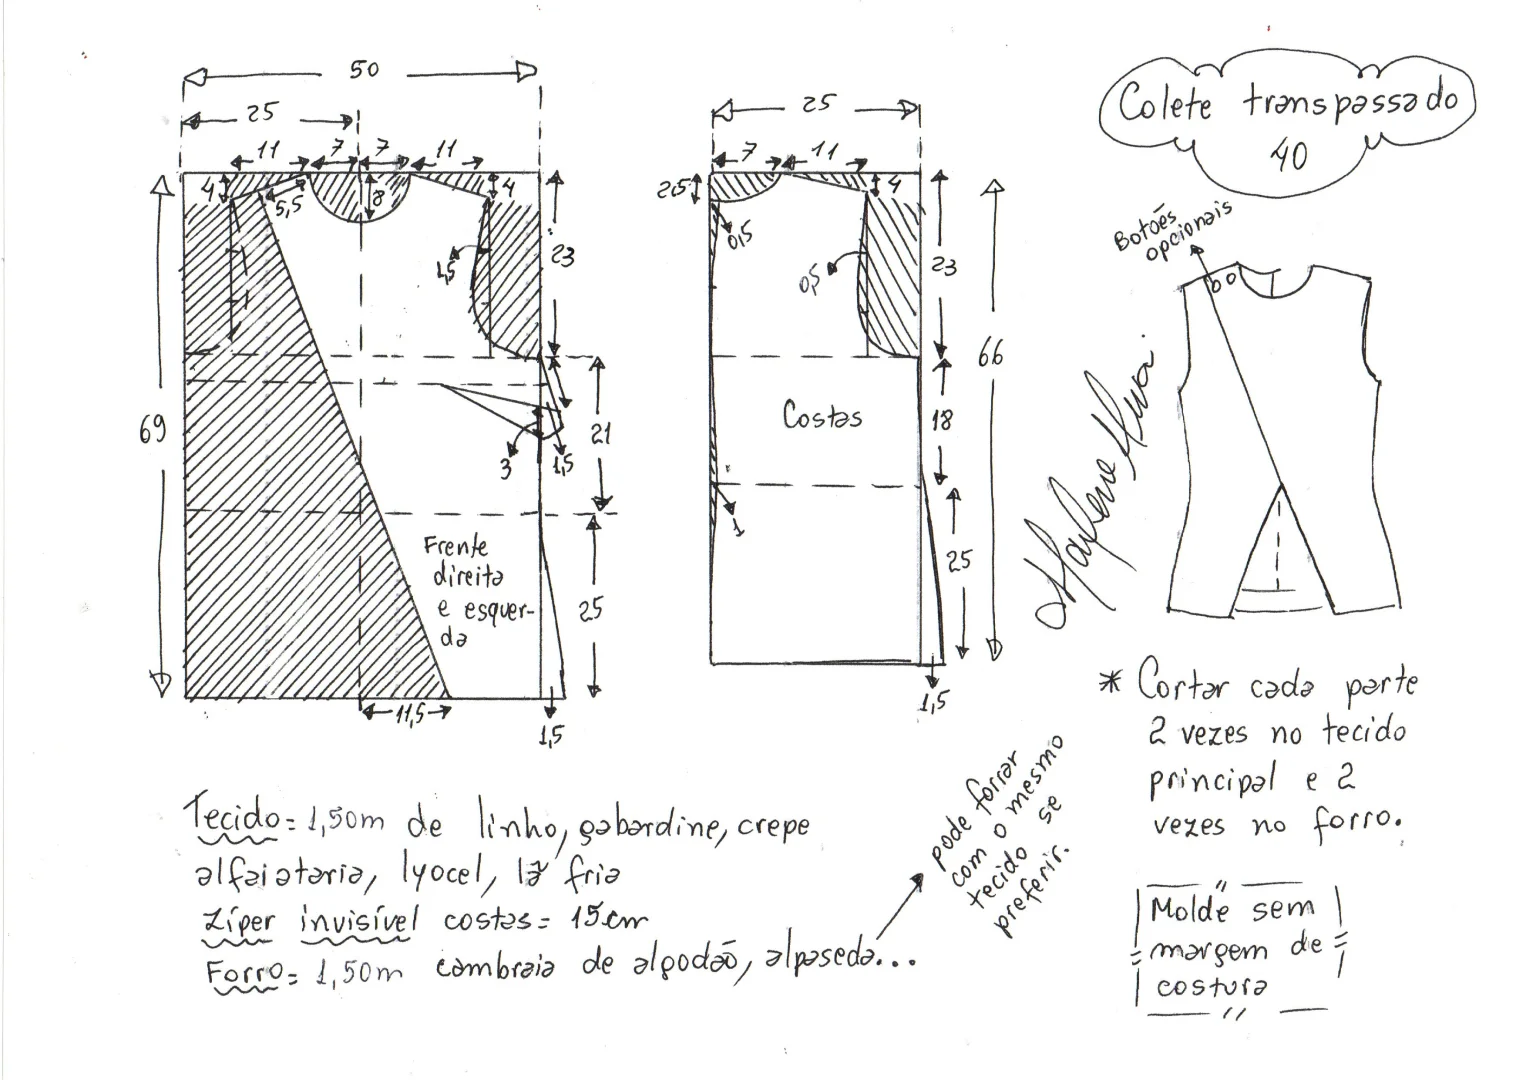 50
25
11 7 7 11
4 5,5 8 4
1,5
23
69
21
3
1,5
Frente
direita
e esquer-
da
25
11,5
1,5
25
7 11
2,5 4
0,5
0,5
23
66
Costas
18
1
25
1,5
Colete transpassado
40
Botões
opcionais
* Cortar cada parte
2 vezes no tecido
principal e 2
vezes no forro.
Molde sem
margem de
costura
Tecido= 1,50m de linho, gabardine, crepe
alfaiataria, lyocel, lã fria
Zíper invisível costas= 15cm
Forro= 1,50m cambraia de algodão, alpaseda...
pode forrar
com o mesmo
tecido se
preferir.